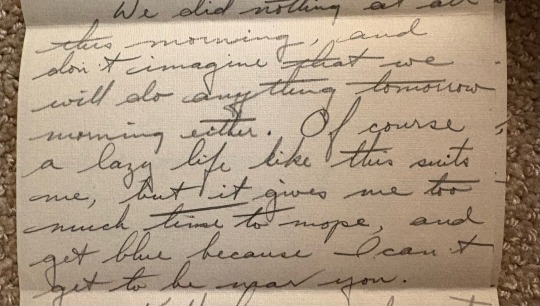 We did nothing at all
this morning, and
don't imagine that we
will do anything tomorrow
morning either. Of course,
a lazy life like this suits
me, but it gives me too
much time to mope, and
get blue because I can't
get to be near you.